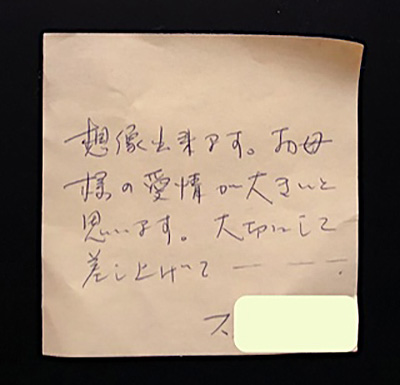 想像出来ます。お母
様の愛情が大きいと
思います。大切にして
差し上げて ― ― ― .
ス